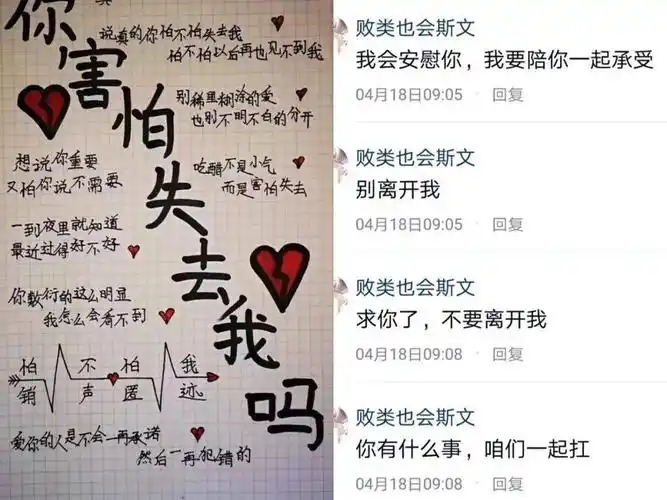 你害怕失去我吗
说真的你怕不怕失去我
怕不怕以后再也见不到我
别稀里糊涂的爱
也别不明不白的分开
想说你重要
又怕你说不需要
吃醋不是小气
而是害怕失去
一到夜里就知道
最近过得好不好
你敷衍的这么明显
我怎么会看不到
怕 不 怕 我
销 声 匿 迹
爱你的人是不会一再承诺
然后一再犯错的
败类也会斯文
我会安慰你，我要陪你一起承受
04月18日09:05 · 回复
败类也会斯文
别离开我
04月18日09:05 · 回复
败类也会斯文
求你了，不要离开我
04月18日09:08 · 回复
败类也会斯文
你有什么事，咱们一起扛
04月18日09:08 · 回复